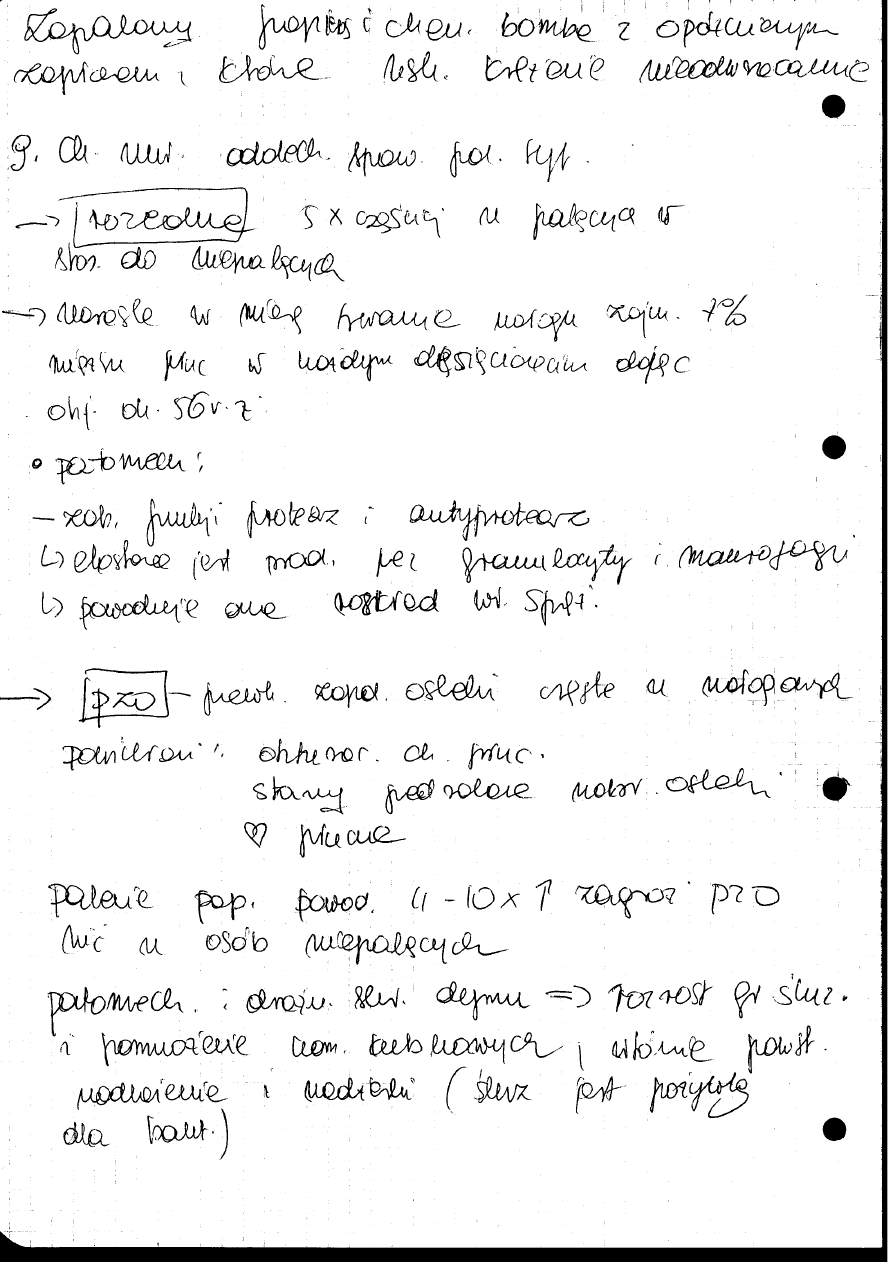 Zapalony papieros i chem. bombę z opóźnionym
zapłonem, które usk. krążenie nieodwracalnie
9. Ch. ukł. oddech. spow. pal. tyt.
→ rozedma 5 x częściej u palących w
stos. do niepalących
→ narasta w miarę trwania nałogu zajm. 7%
miąższu płuc w każdym dziesięcioleciu dając
obj. ch.
• patomech:
- zab. funkcji proteaz i antyproteaz
↳ elastaza jest prod. przez granulocyty i makrofagi
↳ powoduje ona rozkład wł. spręż.
→ pzo - przewl. zapal. oskrzeli częste u nałogowych
powikłań: obturac. ch. płuc.
stany przedrakowe nabł. oskrzeli
♡ płucne
palenie pap. powod. 4-10x ↑ zagroż pzo
niż u osób niepalących
patomech. : drażn. skł. dymu => rozrost gr śluz.
i pomnożenie kom. kubkowych, wtórnie powst.
nadkażenie i nadżerki (śluz jest pożywką
dla bakt.)